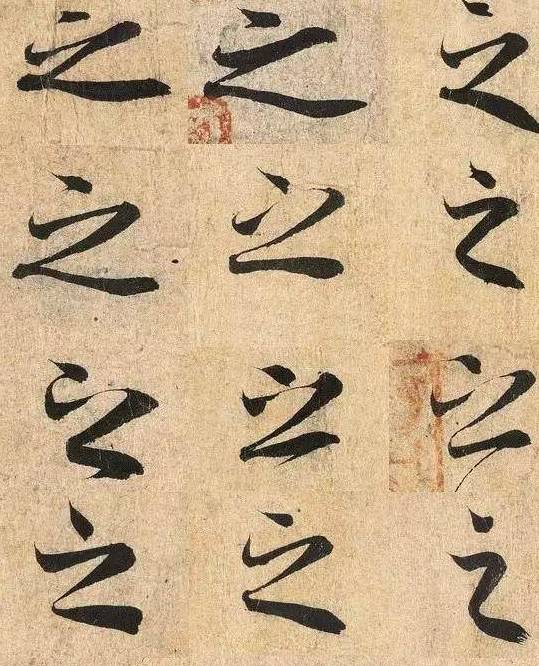 之之之
之之之
之之之
之之之